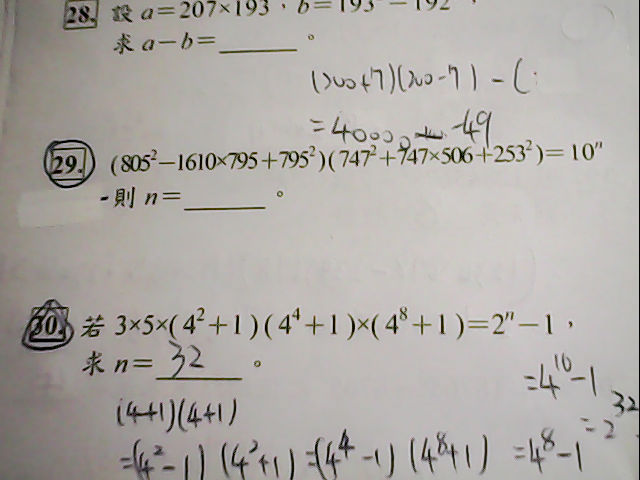 28. 設 a=207×193，b=193²-192
求 a-b=______。
(200+7)(200-7) - (
=40000-49
29. (805²-1610×795+795²)(747²+747×506+253²)=10ⁿ
則 n=______。
30. 若 3×5×(4²+1)(4⁴+1)×(4⁸+1)=2ⁿ-1，
求 n= 32 。
=4¹⁶-1
(4+1)(4+1)
=2³²
=(4²-1)(4²+1)=(4⁴-1)(4⁸+1) =4⁸-1